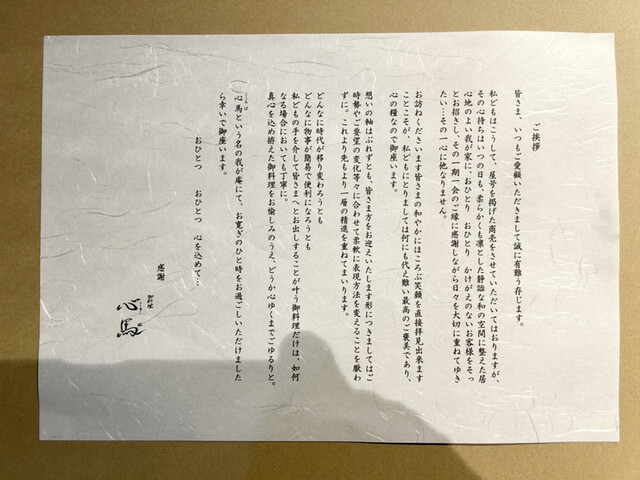 ご挨拶
皆さま、いつもご愛顧いただきまして誠に有難う存じます。
私どもはこうして、屋号を掲げた商売をさせていただいてはおりますが、
その心持ちはいつの日も、柔らかくも凛とした静謐な和の空間に整えた居
心地のよい我が家に、おひとり おひとり かけがえのないお客様をそっ
とお招きし、その一期一会のご縁に感謝しながら日々を大切に重ねてゆき
たい…その一心に他なりません。
お訪ねくださいます皆さまの和やかにほころぶ笑顔を直接拝見出来ます
ことこそが、私どもにとりましては何にも代え難い最高のご褒美であり、
心の糧なので御座います。
想いの軸はぶれずとも、皆さま方をお迎えいたします形につきましてはご
時勢やご要望の変化等々に合わせて柔軟に表現方法を変えることを厭わ
ずに。これより先もより一層の精進を重ねてまいります。
どんなに時代が移り変わろうとも
どんなに物事が簡易で便利になろうとも
私どもの手を介して皆さまへとお出しすることが叶う御料理だけは、如何
なる場合においても丁寧に。
真心を込め拵えた御料理をお愉しみのうえ、どうか心ゆくまでごゆるりと。
心馬という名の我が庵にて、お寛ぎのひと時をお過ごしいただけました
ら幸いで御座います。
おひとつ おひとつ 心を込めて…
感謝
御料理
心馬